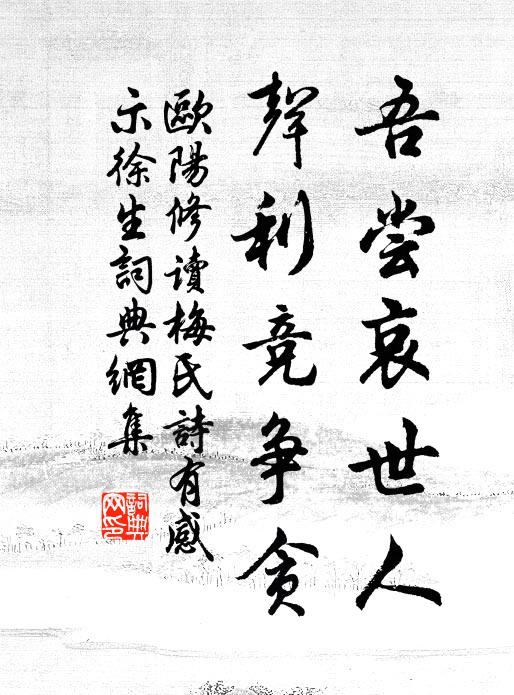 吾尝哀世人
聲利竞争貪
歐陽修讀梅氏詩有感
示徐生詞典網集
詞典網印